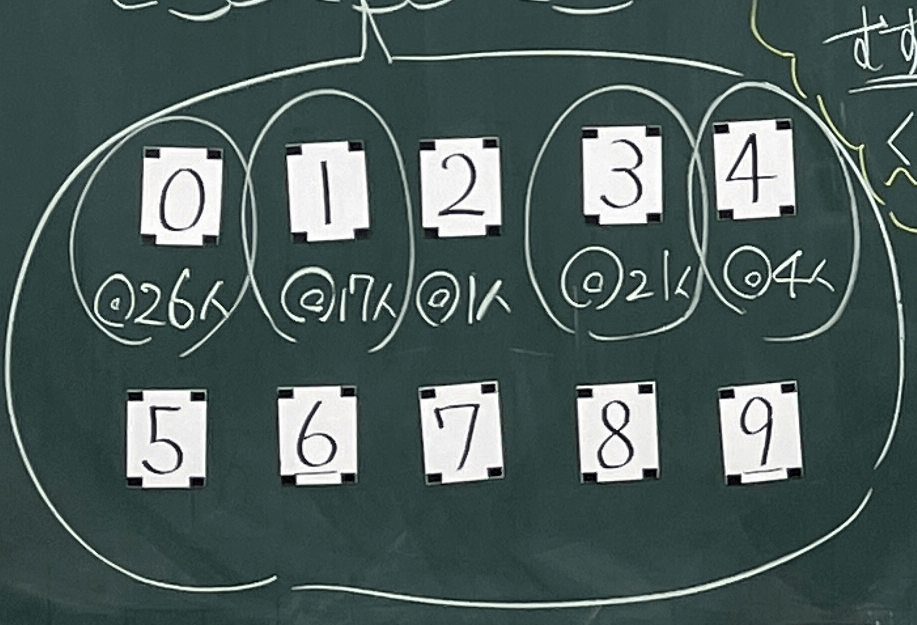 0 1 2 3 4
@26人 @17人 @1人 @21人 @4人
5 6 7 8 9